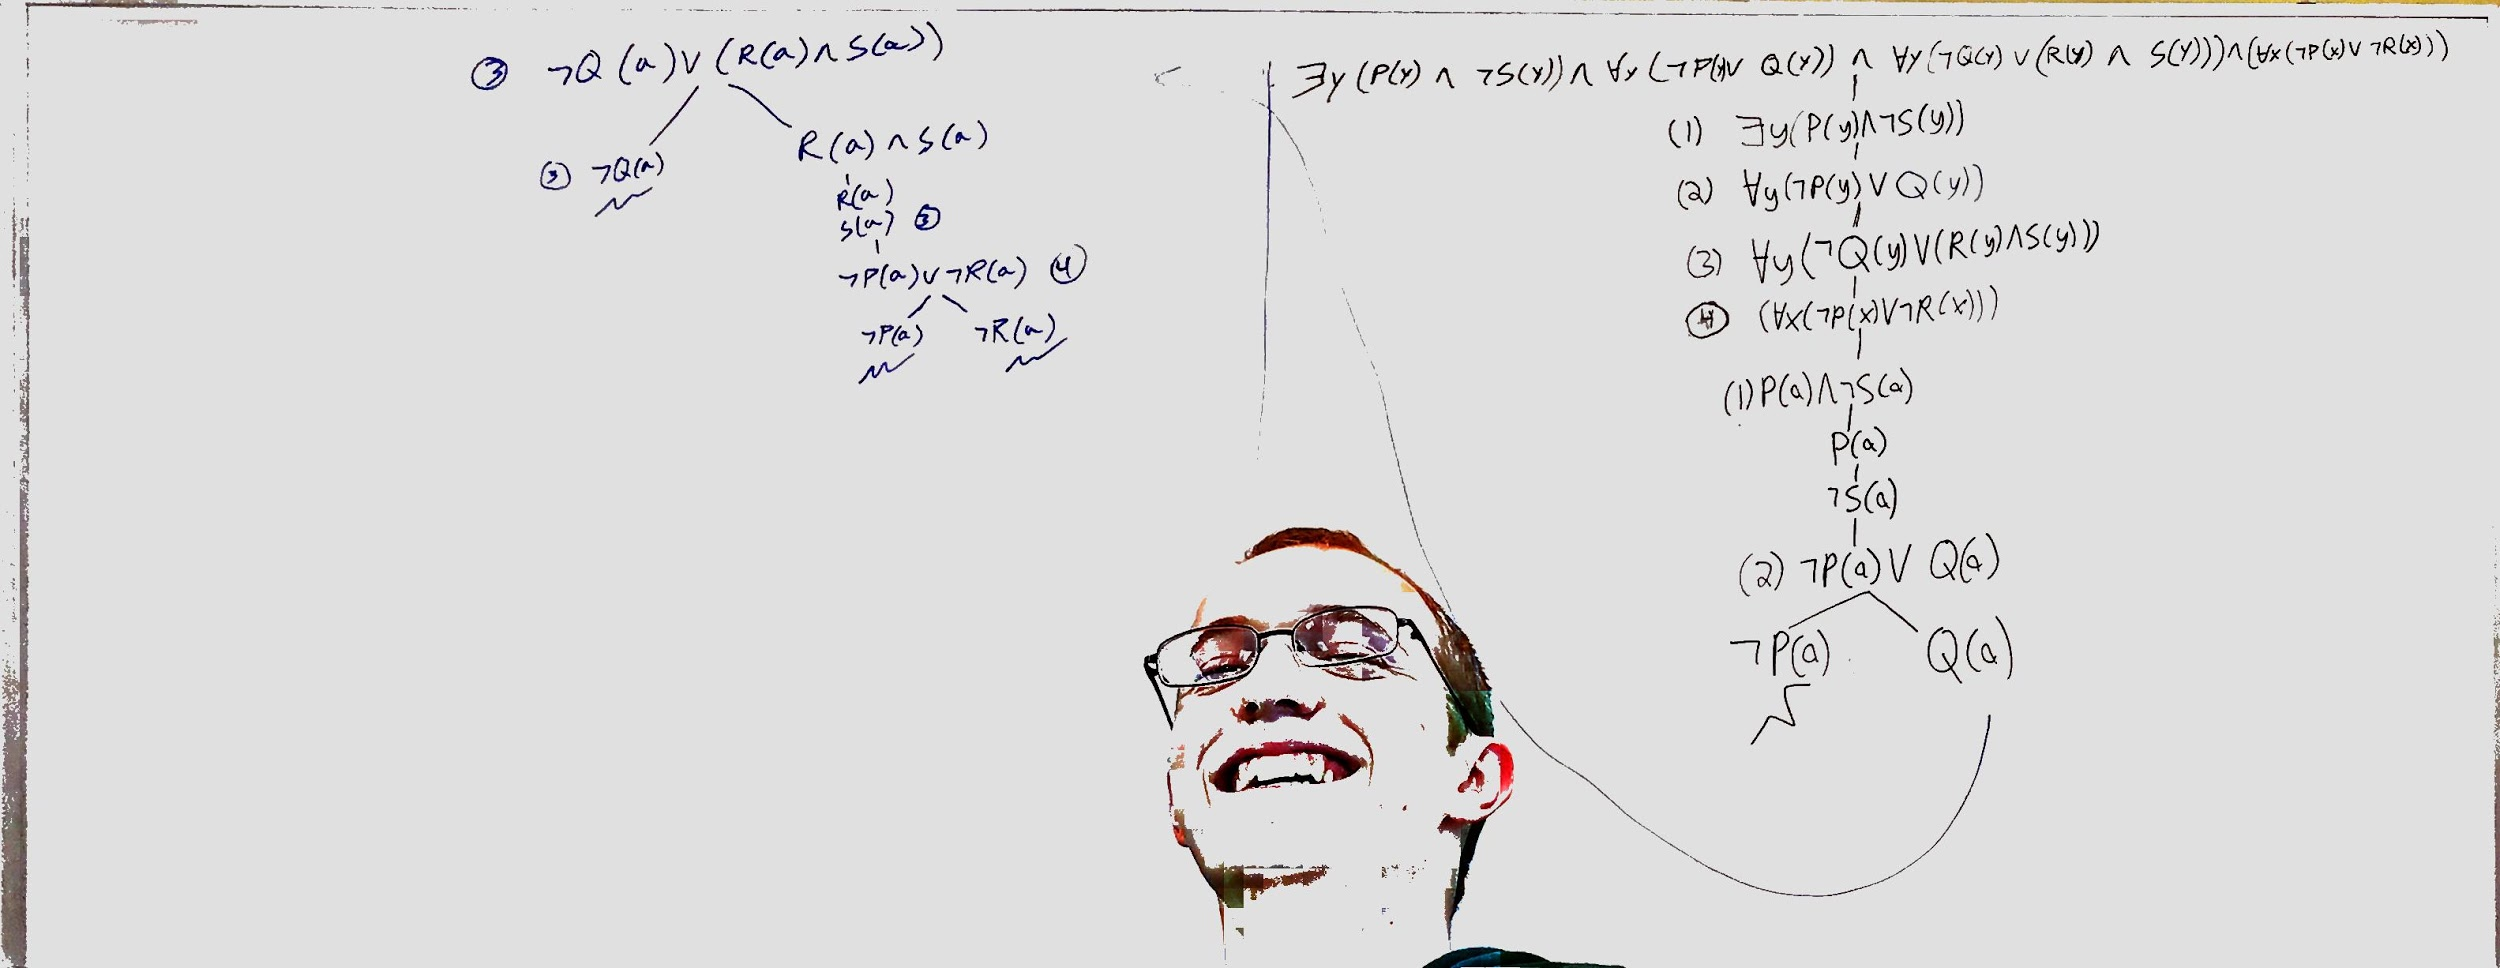 ③ ¬Q(a)∨(R(a)∧S(a))
③ ¬Q(a)
R(a)∧S(a)
R(a)
S(a) ③
¬P(a)∨¬R(a) ④
¬P(a) ¬R(a)
∃y(P(y)∧¬S(y))∧∀y(¬P(y)∨Q(y))∧∀y(¬Q(y)∨(R(y)∧S(y)))∧(∀x(¬P(x)∨¬R(x)))
(1) ∃y(P(y)∧¬S(y))
(2) ∀y(¬P(y)∨Q(y))
(3) ∀y(¬Q(y)∨(R(y)∧S(y)))
④ (∀x(¬P(x)∨¬R(x)))
(1) P(a)∧¬S(a)
P(a)
¬S(a)
(2) ¬P(a)∨Q(a)
¬P(a) Q(a)